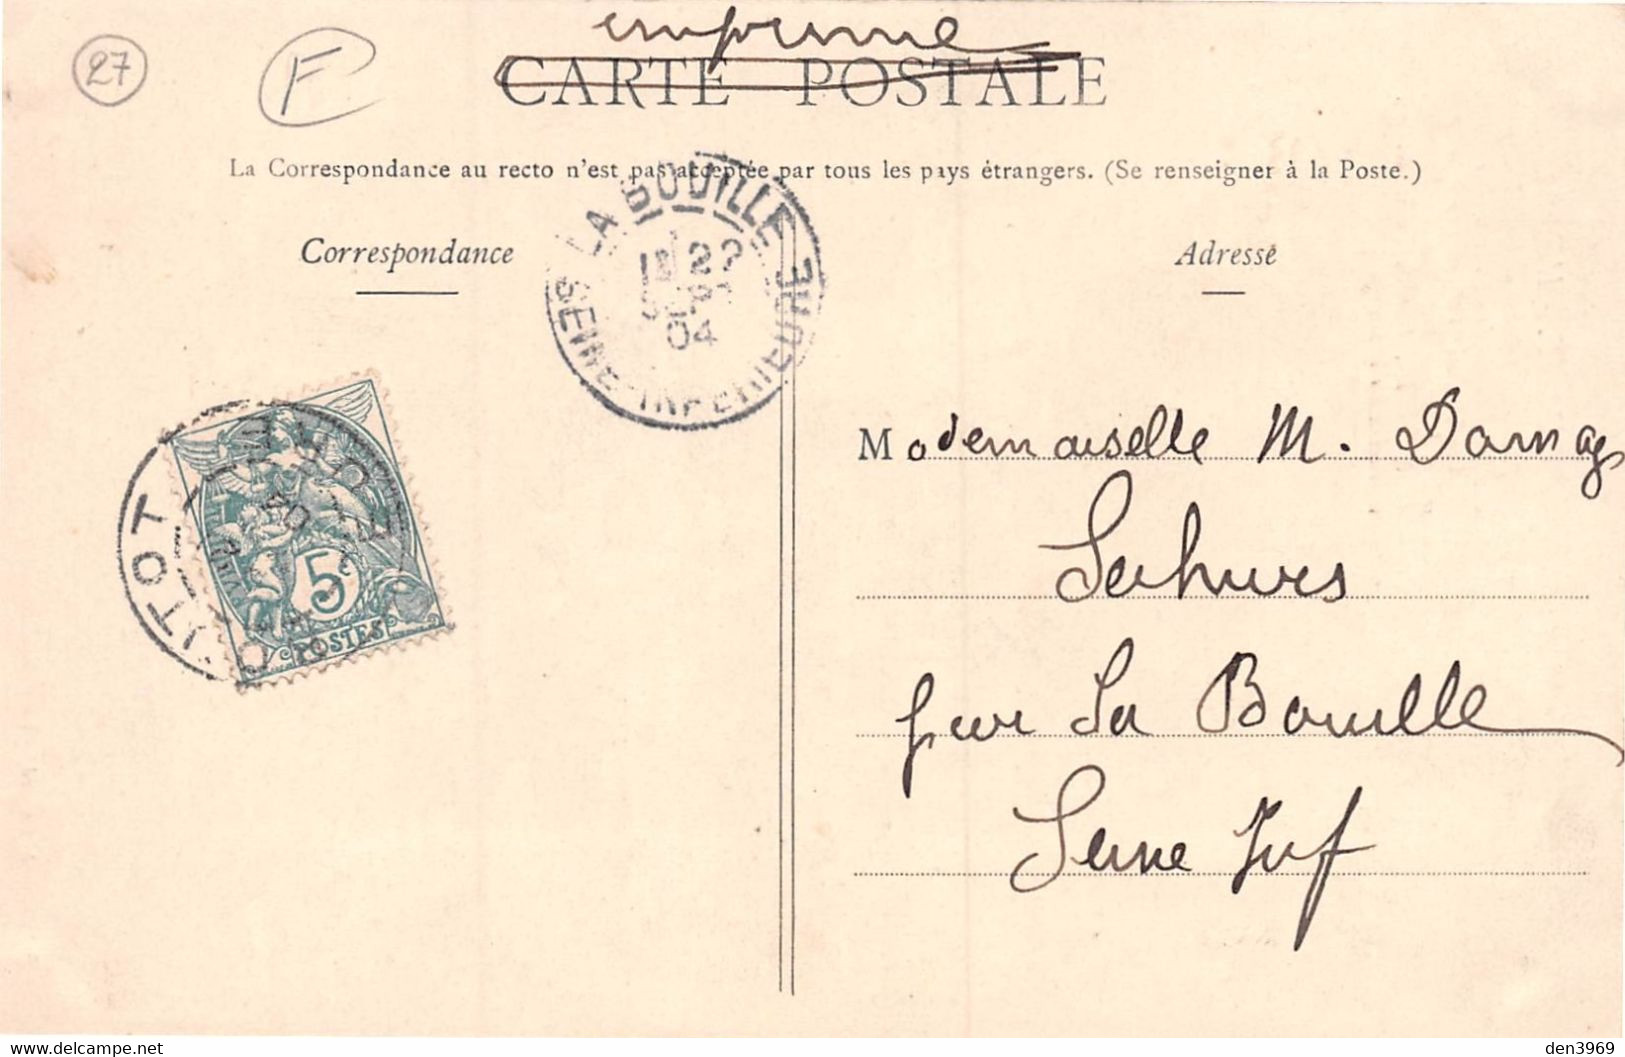 imprimé
27
F
CARTE POSTALE
La Correspondance au recto n'est pas acceptée par tous les pays étrangers. (Se renseigner à la Poste.)
LA BOUILLE
04
SEINE-INFERIEURE
Correspondance
Adresse
Mademoiselle M. Damag
Sahurs
par La Bouille
Seine Inf
EURE
04
5
POSTES
den3969
www.delcampe.net